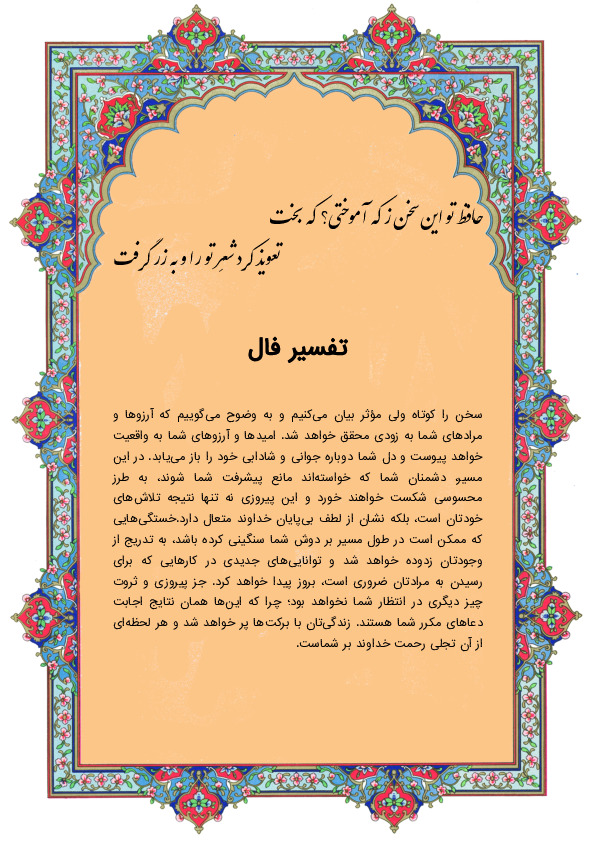 حافظ تو این سخن ز که آموختی؟ که بخت
تعویذ کرد شهرِ تو را و به زر گرفت
تفسیر فال
سخن را کوتاه ولی مؤثر بیان می‌کنیم و به وضوح می‌گوییم که آرزوها و
مرادهای شما به زودی محقق خواهد شد. امیدها و آرزوهای شما به واقعیت
خواهد پیوست و دل شما دوباره جوانی و شادابی خود را باز می‌یابد. در این
مسیر، دشمنان شما که خواسته‌اند مانع پیشرفت شما شوند، به طرز
محسوسی شکست خواهند خورد و این پیروزی نه تنها نتیجه تلاش‌های
خودتان است، بلکه نشان از لطف بی‌پایان خداوند متعال دارد.خستگی‌هایی
که ممکن است در طول مسیر بر دوش شما سنگینی کرده باشد، به تدریج از
وجودتان زدوده خواهد شد و توانایی‌های جدیدی در کارهایی که برای
رسیدن به مرادتان ضروری است، بروز پیدا خواهد کرد. جز پیروزی و ثروت
چیز دیگری در انتظار شما نخواهد بود؛ چرا که این‌ها همان نتایج اجابت
دعاهای مکرر شما هستند. زندگی‌تان با برکت‌ها پر خواهد شد و هر لحظه‌ای
از آن تجلی رحمت خداوند بر شماست.